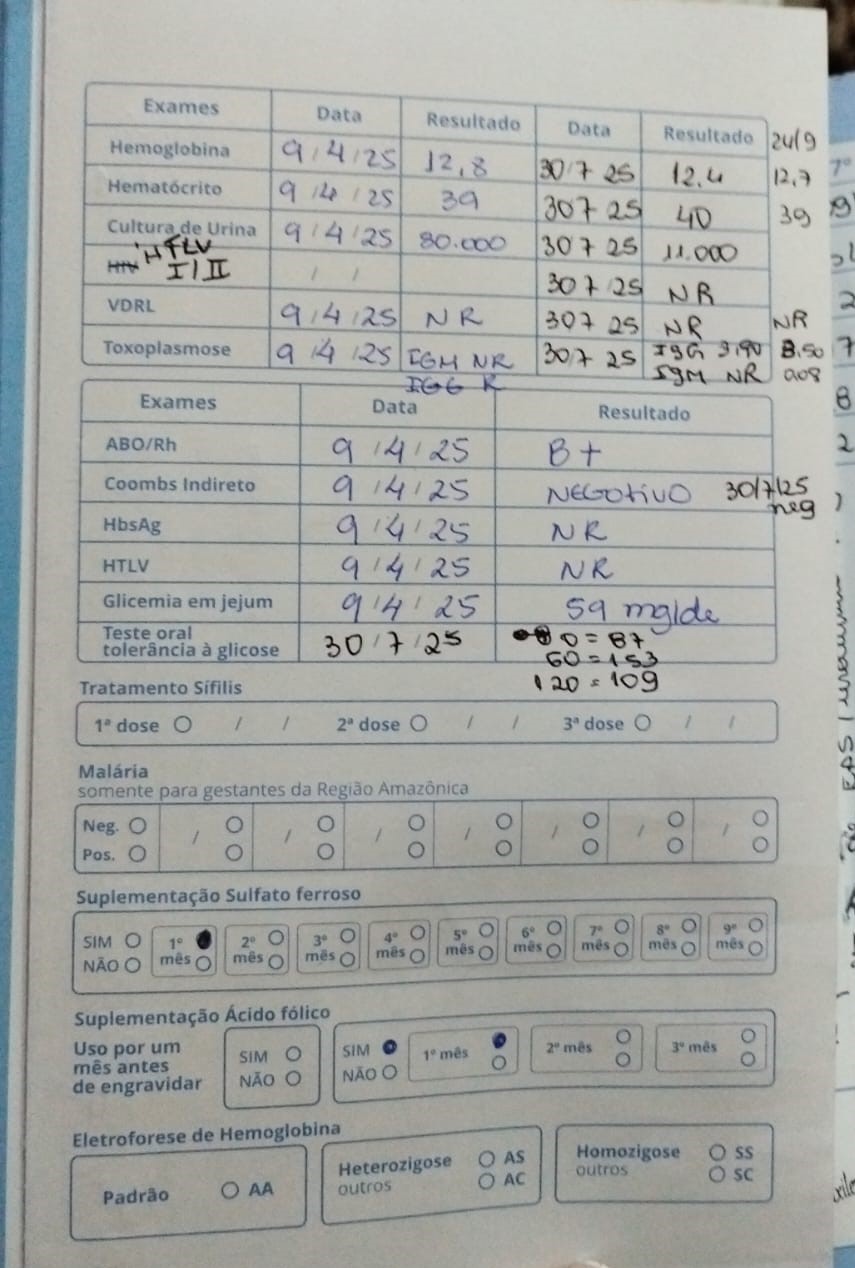 Exames Data Resultado Data Resultado 24/9
Hemoglobina 9/4/25 12,8 30/7 25 12.4 12,7
Hematócrito 9/4/25 39 30 7 25 40 39
Cultura de Urina 9/4/25 80.000 30 7 25 11.000
HIV HTLV I/II / / 30 7 25 NR
VDRL 9/4/25 NR 30 7 25 NR NR
Toxoplasmose 9/4/25 IGM NR 30/7 25 IgG 9,90 8,50
IGG R IgM NR 0,08
Exames Data Resultado
ABO/Rh 9/4/25 B+
Coombs Indireto 9/4/25 NEGOtiVO 30/7/25
neg
HbsAg 9/4/25 NR
HTLV 9/4/25 NR
Glicemia em jejum 9/4/25 59 mg/de
Teste oral
tolerância à glicose 30/7/25 0 = 87
60 = 153
120 = 109
Tratamento Sífilis
1ª dose / / 2ª dose / / 3ª dose / /
Malária
somente para gestantes da Região Amazônica
Neg. / / / / / / /
Pos.
Suplementação Sulfato ferroso
SIM 1º 2º 3º 4º 5º 6º 7º 8º 9º
NÃO mês mês mês mês mês mês mês mês mês
Suplementação Ácido fólico
Uso por um
mês antes
de engravidar
SIM
NÃO
SIM
NÃO
1º mês 2º mês 3º mês
Eletroforese de Hemoglobina
Padrão AA
Heterozigose AS
outros AC
Homozigose SS
outros SC